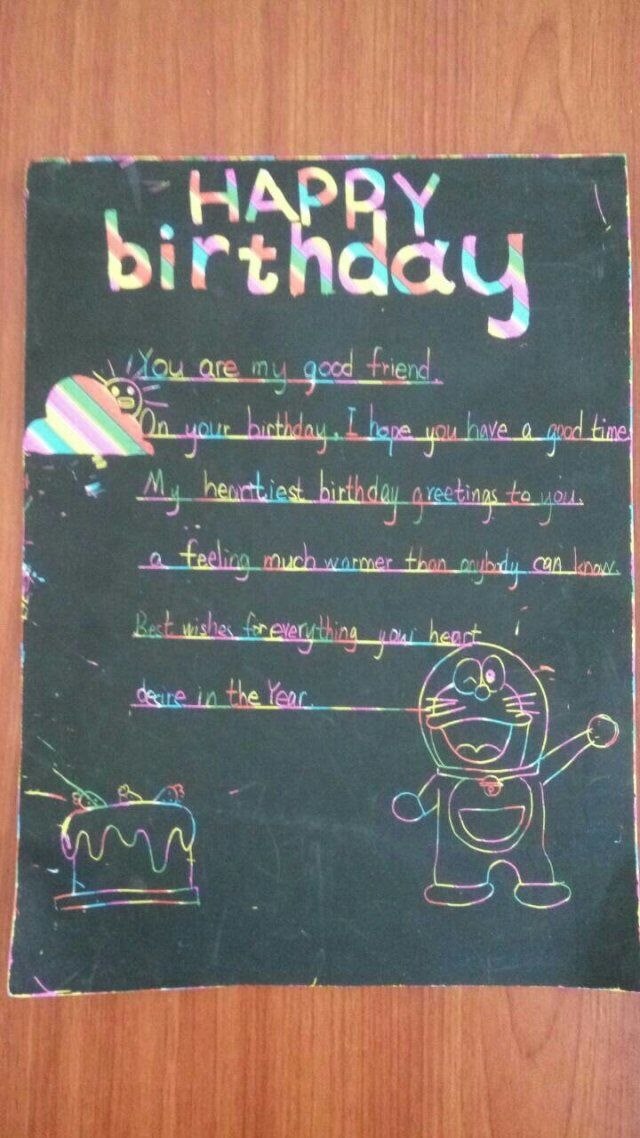 HAPPY
birthday
You are my good friend.
On your birthday, I hope you have a good time
My hearttiest birthday greetings to you.
a feeling much warmer than anybody can know.
Best wishes for everything your heart
desire in the Year.